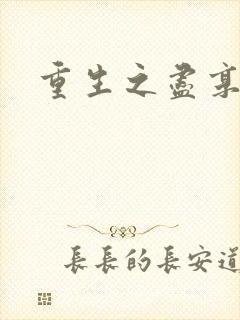 重生之盡
長長的長安道